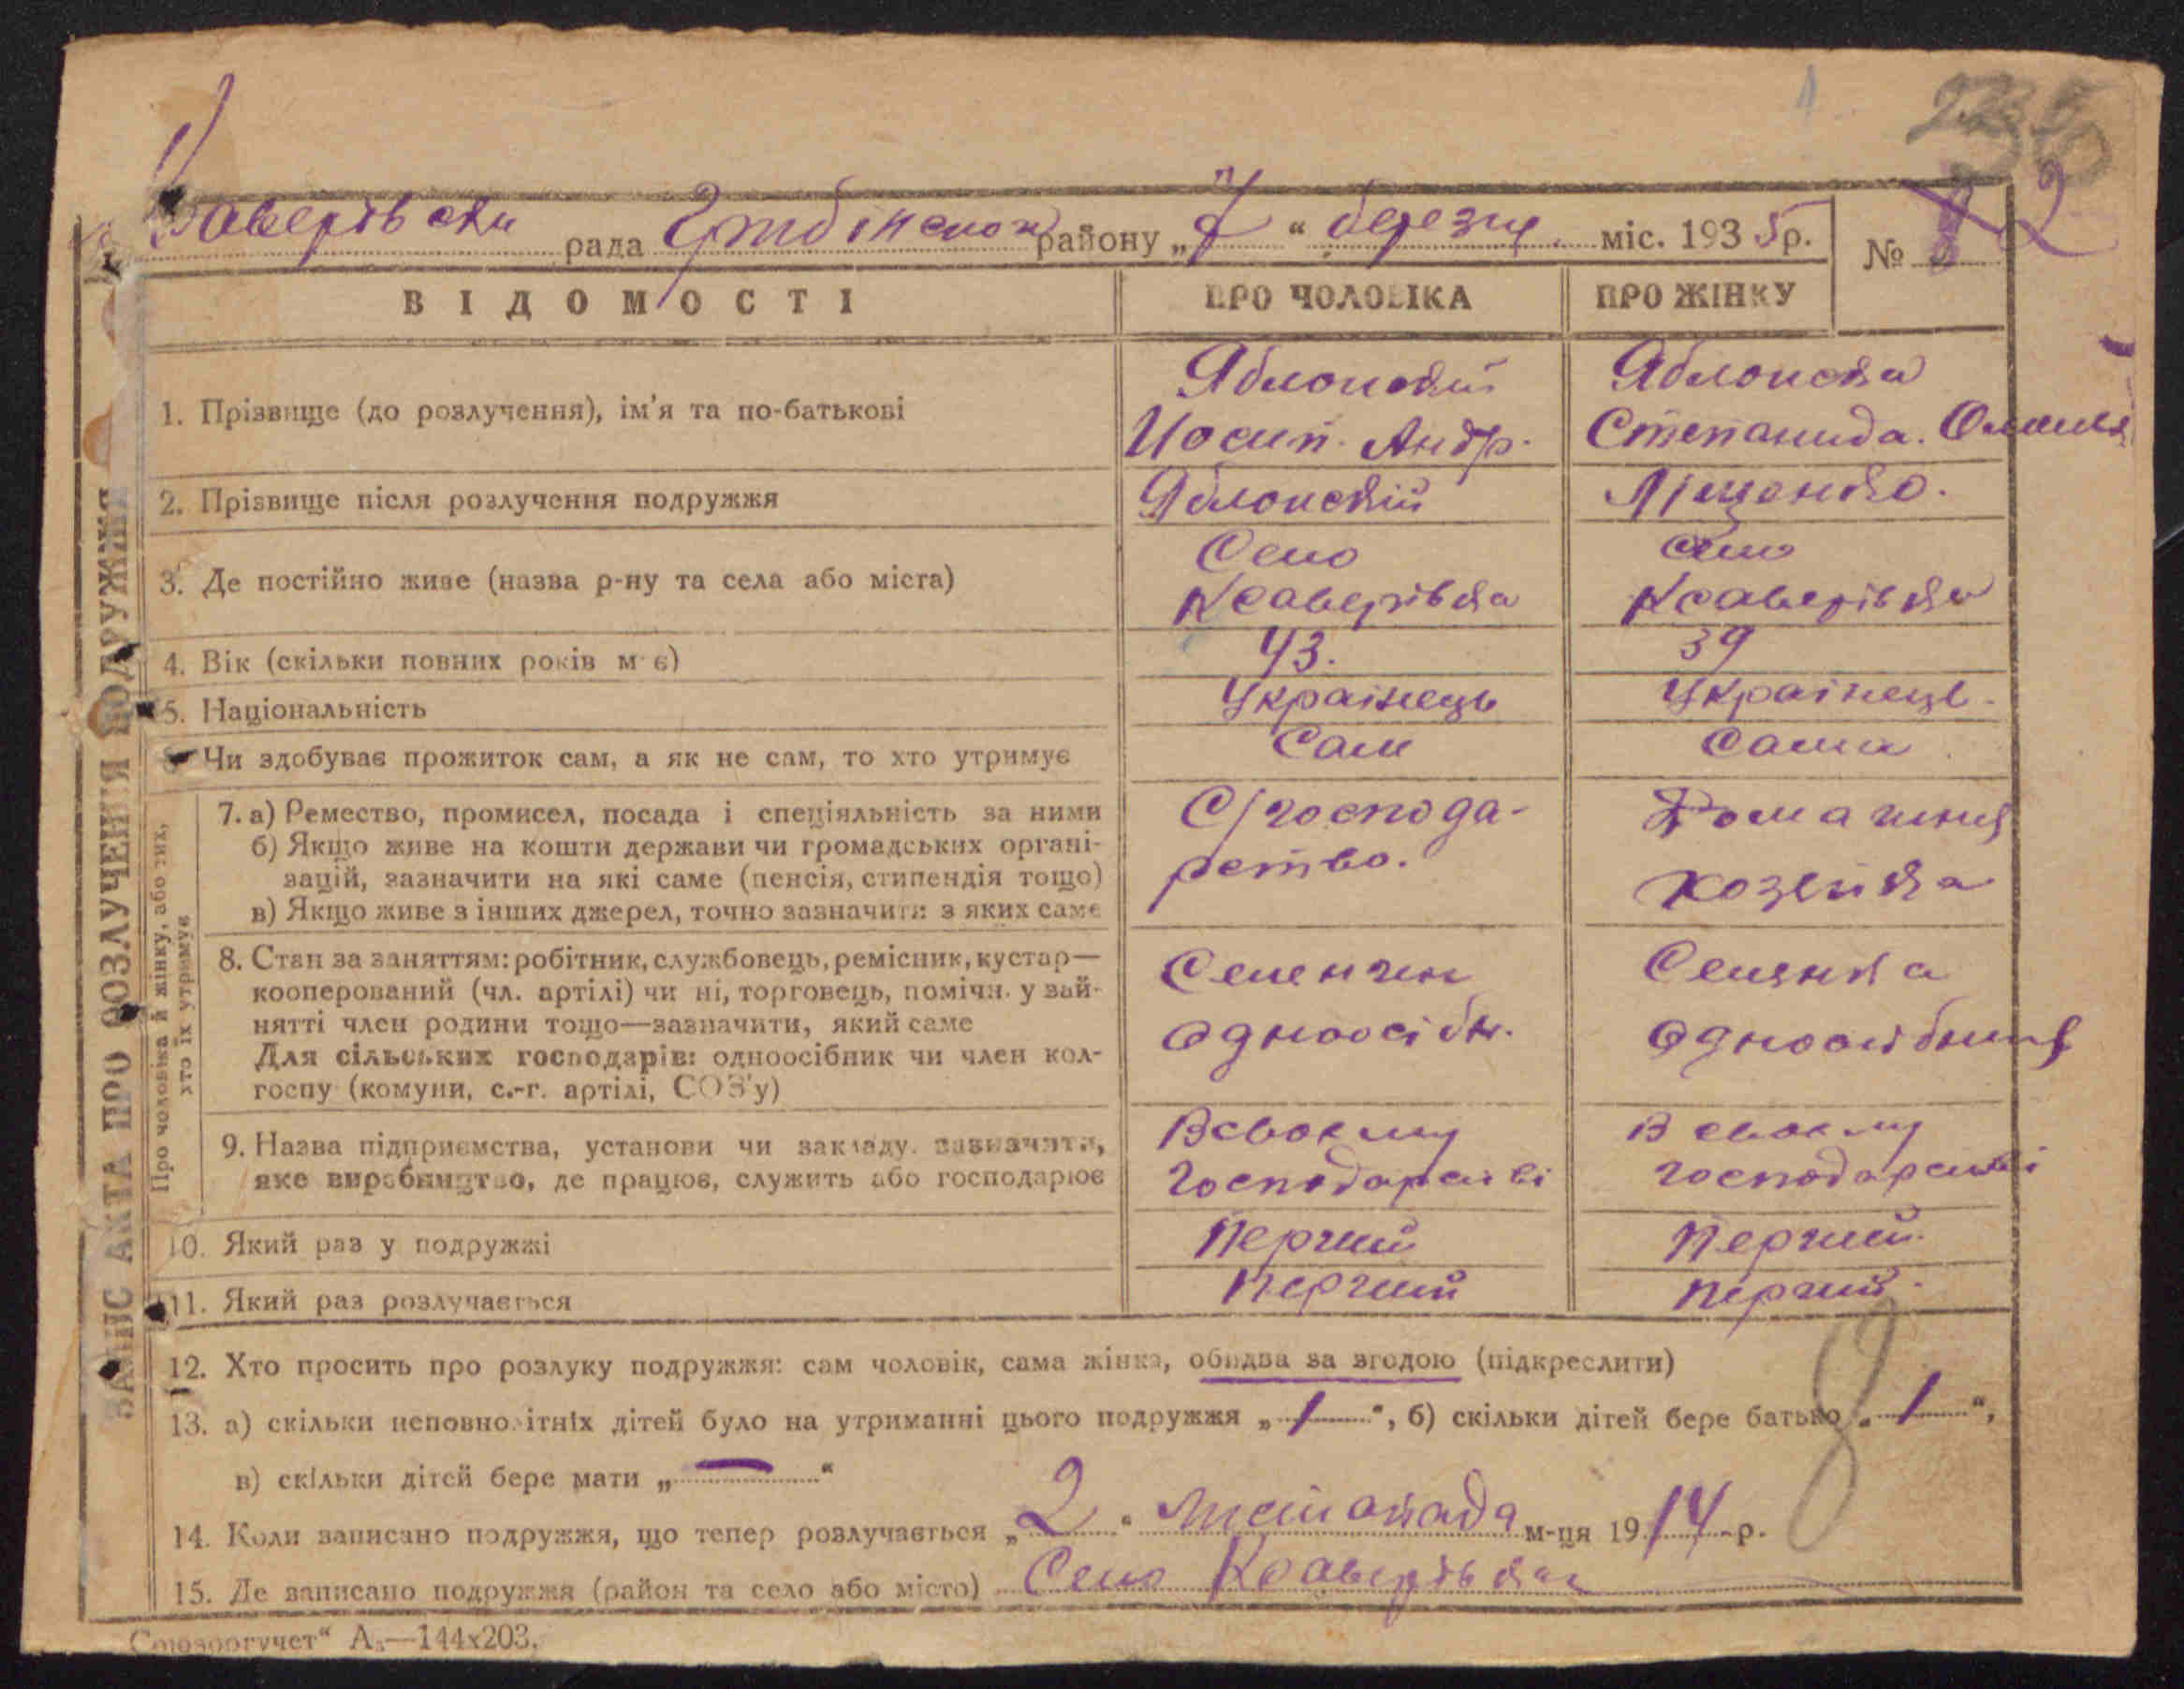 235
Ксаверівська рада Гребінського району „7“ березня міс. 1935р. № 2
ВІДОМОСТІ ПРО ЧОЛОВІКА ПРО ЖІНКУ
ЗАПИС АКТА ПРО РОЗЛУЧЕННЯ ПОДРУЖЖЯ
1. Прізвище (до розлучення), ім'я та по-батькові
Яблонский
Иосип. Андр.
Яблонска
Степанида.
2. Прізвище після розлучення подружжя
Яблонскій
3. Де постійно живе (назва р-ну та села або міста)
Село
Ксаверівка
село
Ксаверівка
4. Вік (скільки повних років має) 43. 39
5. Національність Українець Українець.
6. Чи здобуває прожиток сам, а як не сам, то хто утримує Сам Сама
Про чоловіка й жінку, або тих,
хто їх утримує
7. а) Ремество, промисел, посада і спеціяльність за ними
б) Якщо живе на кошти держави чи громадських органі-
зацій, зазначити на які саме (пенсія, стипендія тощо)
в) Якщо живе з інших джерел, точно зазначити з яких саме
С/господа-
рство.
Домашня
хозейка
8. Стан за заняттям: робітник, службовець, ремісник, кустар—
кооперований (чл. артілі) чи ні, торговець, помічн. у зай-
нятті член родини тощо—зазначити, який саме
Для сільських господарів: одноосібник чи член кол-
госпу (комуни, с.-г. артілі, СОЗ'у)
Селенин
одноосібн.
Селянка
одноосібниця
9. Назва підприємства, установи чи закладу. зазначити,
яке виробництво, де працює, служить або господарює
В своєму
господарстві
В своєму
господарстві
10. Який раз у подружжі Перший Перший.
11. Який раз розлучається Перший Перший.
12. Хто просить про розлуку подружжя: сам чоловік, сама жінка, обидва за згодою (підкреслити)
13. а) скільки неповнолітніх дітей було на утриманні цього подружжя „1“, б) скільки дітей бере батько „1“,
в) скільки дітей бере мати „—“
14. Коли записано подружжя, що тепер розлучається „2“ листопада м-ця 1914 р.
15. Де записано подружжя (район та село або місто) Село Ксаверівка
Союзоргучет“ А₅—144х203.